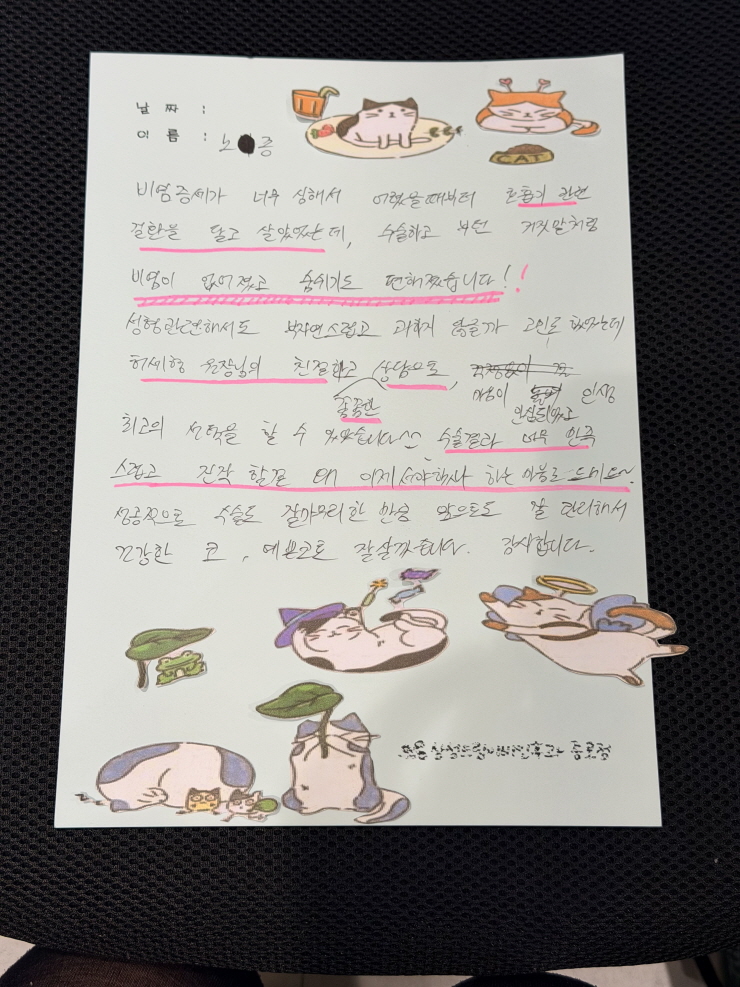 날 짜 :
이 름 : 노 종
CAT
비염증세가 너무 심해서 어렸을때부터 호흡기 관련
질환을 달고 살았었는데, 수술하고 부턴 거짓말처럼
비염이 없어졌고 숨쉬기도 편해졌습니다!!
성형관련해서도 부자연스럽고 과하지 않을까 고민도 했었는데
허세형 원장님의 친절하고 꼼꼼한 상담으로, 마음이 안심되었고 인생
최고의 선택을 할 수 있었습니다^^ 수술결과 너무 만족
스럽고 진작 할껄 왜 이제서야했나 하는 마음도 드네요~
성공적으로 수술도 잘마무리한 만큼 앞으로도 잘 관리해서
건강한 코, 예쁜코로 잘살겠습니다. 감사합니다.